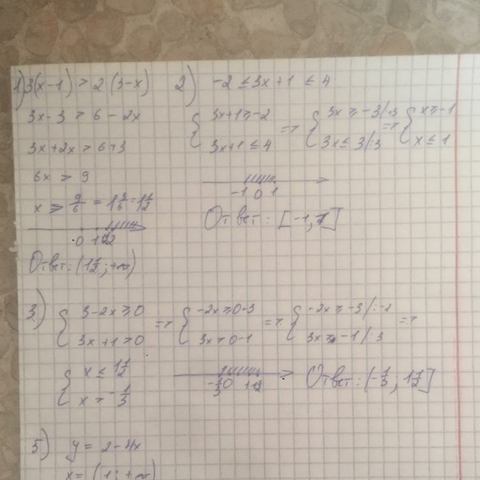 1) 3(x-1) > 2(3-x)
3x-3 > 6-2x
3x+2x > 6+3
6x > 9
x > 9/6 = 1 3/6 = 1 1/2
0 1 1/2
Ответ: (1 1/2; +∞)
2) -2 ≤ 3x+1 ≤ 4
{ 3x+1 ≥ -2 => { 3x ≥ -3 /:3 => { x ≥ -1
3x+1 ≤ 4 3x ≤ 3 /:3 x ≤ 1
-1 0 1
Ответ: [-1; 1]
3) { 3-2x ≥ 0 => { -2x ≥ 0-3 => { -2x ≥ -3 /:-2 =>
3x+1 > 0 3x > 0-1 3x > -1 /:3
{ x ≤ 1 1/2
x > -1/3
-1/3 0 1 1/2
Ответ: (-1/3; 1 1/2]
5) y = 2-4x
x = (1; +∞)